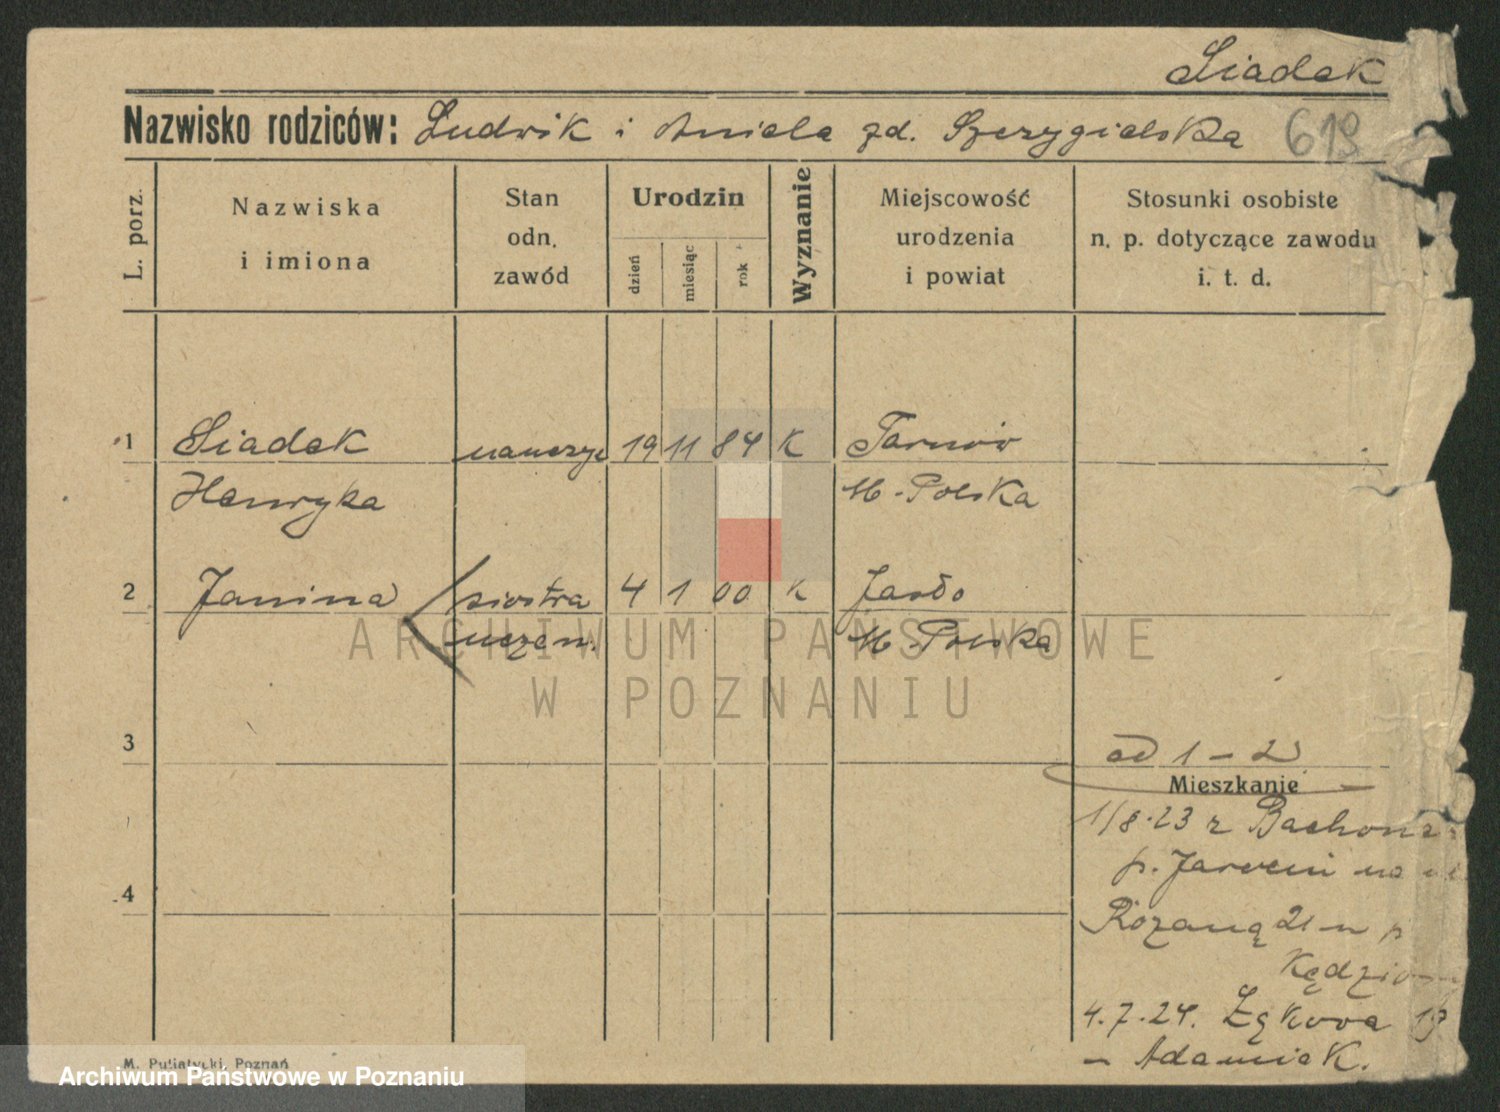 Siadek
Nazwisko rodziców: Ludwik i Aniela zd. Szczygielska 619
L. porz.
Nazwiska
i imiona
Stan
odn.
zawód
Urodzin
dzień
miesiąc
rok
Wyznanie
Miejscowość
urodzenia
i powiat
Stosunki osobiste
n. p. dotyczące zawodu
i. t. d.
1 Siadek nauczyc 19 11 84 K Tarnów
Henryka M-Polska
2 Janina siostra 4 1 00 K Jasło
uczen. M-Polska
ARCHIWUM PAŃSTWOWE
W POZNANIU
3
od 1-2
Mieszkanie
1/8.23 z
p. na
4
Różaną 21 u p
4.7.24. Łąkowa 19
- Adamiak.
M. Putiatycki, Poznań
Archiwum Państwowe w Poznaniu